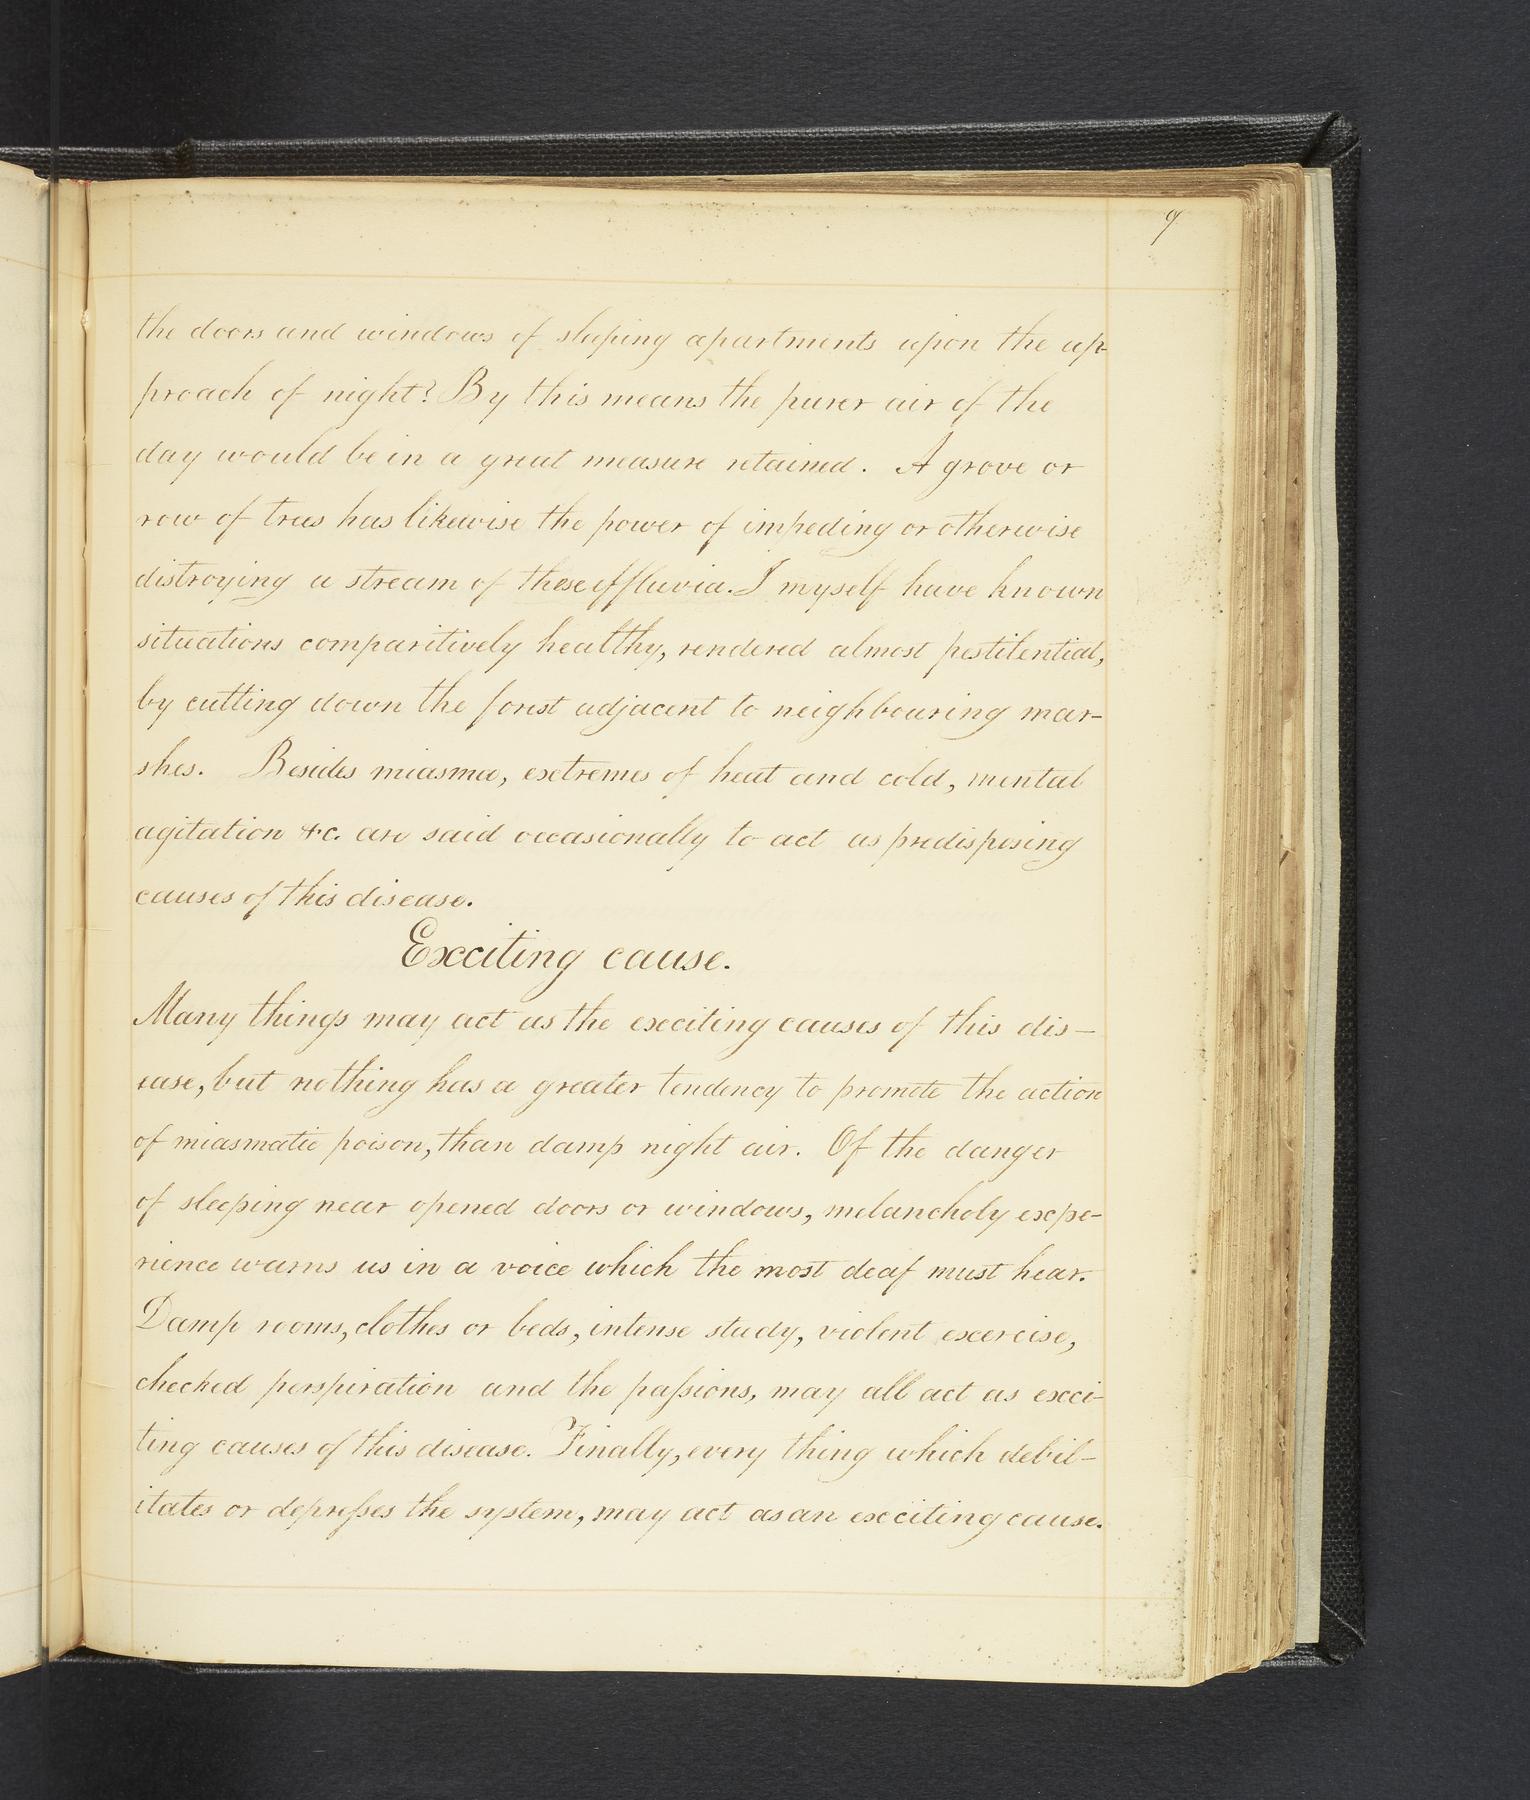 9
the doors and windows of sleeping apartments upon the ap-
proach of night? By this means the purer air of the
day would be in a great measure retained. A grove or
row of trees has likewise the power of impeding or otherwise
distroying a stream of those effluvia. I myself have known
situations comparitively healthy, rendered almost pestilential,
by cutting down the forest adjacent to neighbouring mar-
shes. Besides miasma, extremes of heat and cold, mental
agitation &c. are said occasionally to act as predisposing
causes of this disease.
Exciting cause.
Many things may act as the exciting causes of this dis-
ease, but nothing has a greater tendency to promote the action
of miasmatic poison, than damp night air. Of the danger
of sleeping near opened doors or windows, melancholy expe-
rience warns us in a voice which the most deaf must hear.
Damp rooms, clothes or beds, intense study, violent excercise,
checked perspiration and the paſsions, may all act as exci-
ting causes of this disease. Finally, every thing which debil-
itates or depreſses the system, may act as an exciting cause.